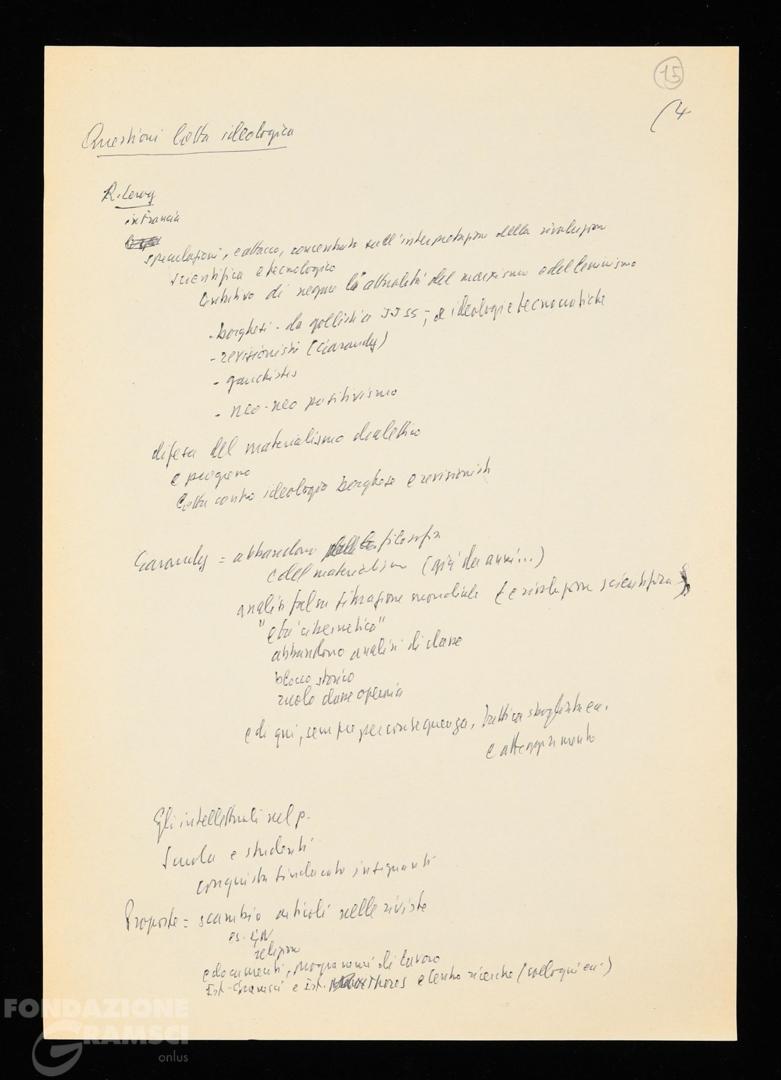 15
(4
Questioni lotta ideologica
R. Leroy
in Francia
speculazioni, e attacco, concentrato sull'interpretazione della rivoluzione
scientifica e tecnologica
tentativo di negare l'attualità del marxismo e del leninismo
- borghesi - da gollisti a JJSS - e ideologie tecnocratiche
- revisionisti (Garaudy)
- gauchistes
- neo-neo positivismo
difesa del materialismo dialettico
lotta contro ideologia borghese e revisionisti
Garaudy = abbandono filosofia
e del materialismo (già da anni...)
analisi falsa situazione mondiale (e rivoluzione scientifica)
"età cibernetica"
abbandono analisi di classe
blocco storico
ruolo classe operaia
e di qui, sempre per conseguenza, tattica sbagliata ecc.
e atteggiamento
Gli intellettuali nel p.
Scuola e studenti
conquista sindacato insegnanti
Proposte = scambio articoli nelle riviste
es.
religione
e documenti, programmi di lavoro
Ist. Gramsci e Ist. Thorez e Centro ricerche (colloqui ecc.)
FONDAZIONE
GRAMSCI
onlus